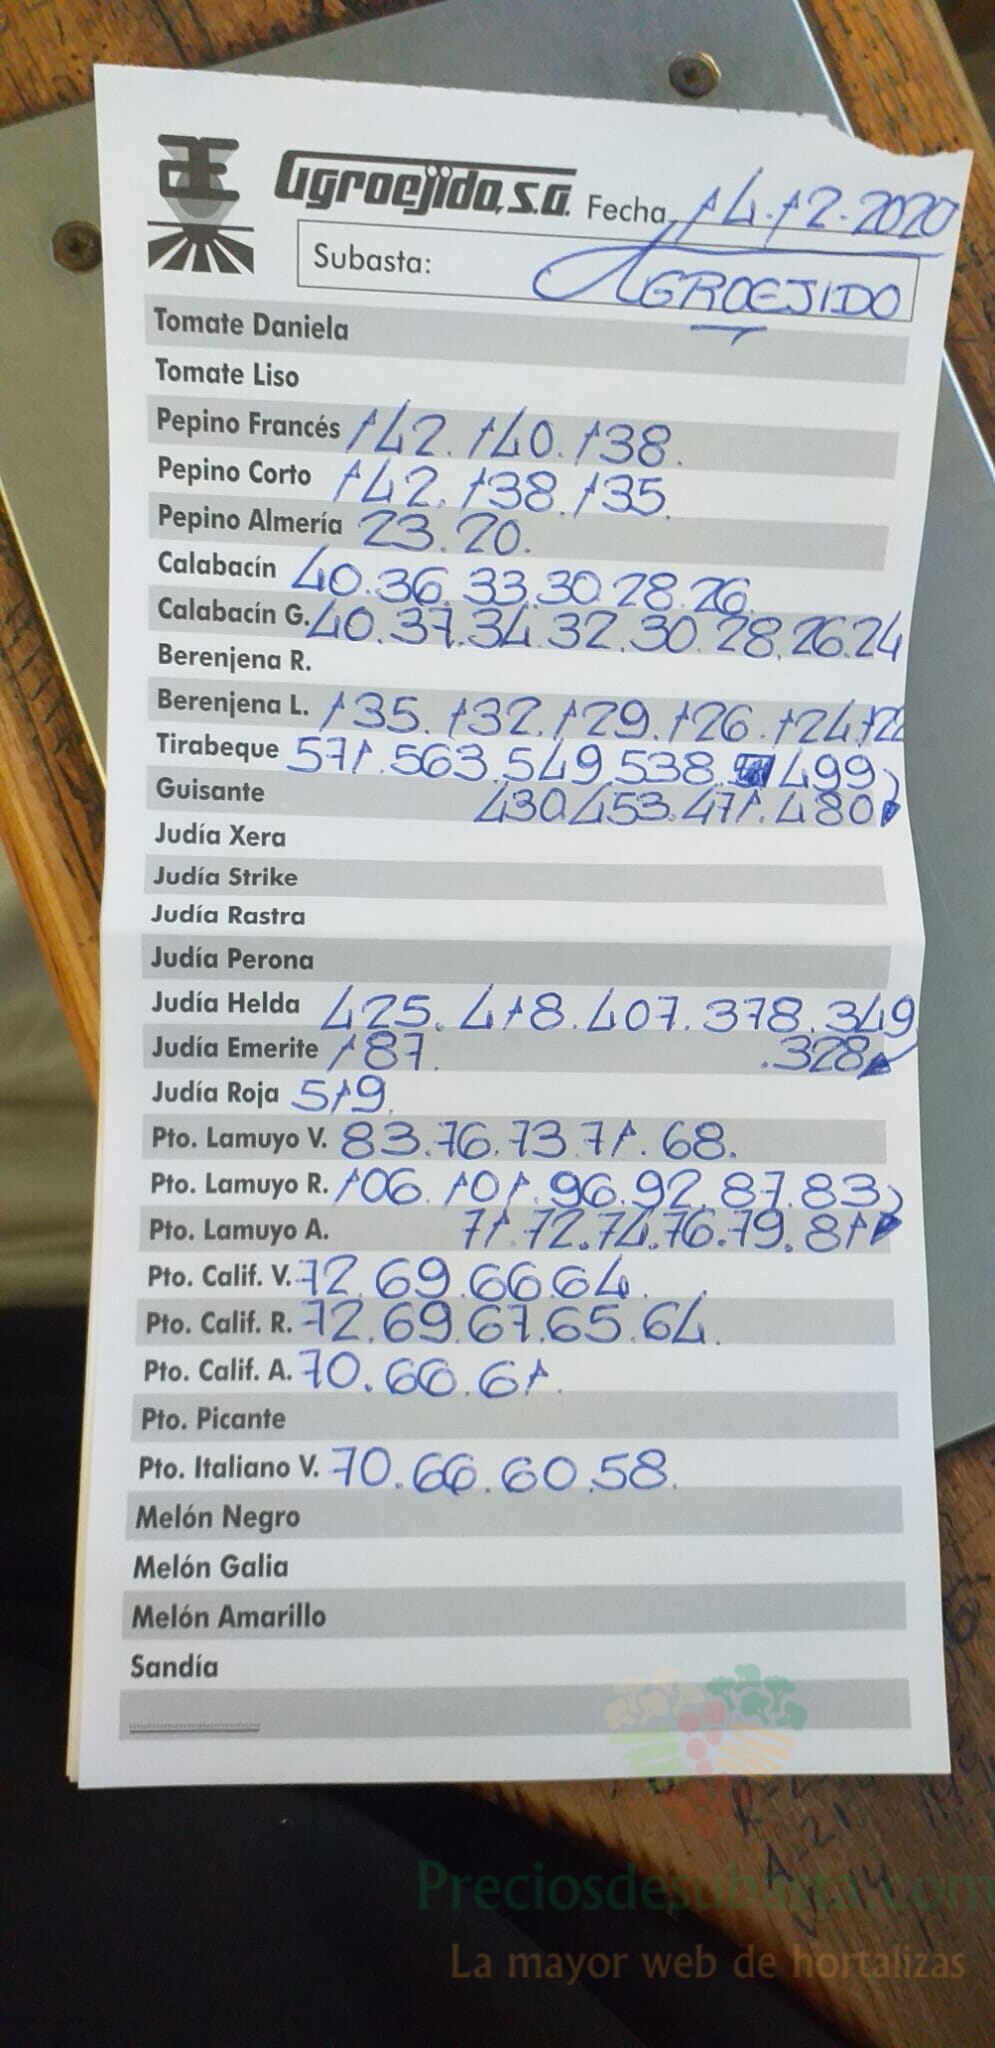 Agroejido, S.A. Fecha 14.12.2020
Subasta: AGROEJIDO
Tomate Daniela
Tomate Liso
Pepino Francés 142. 140. 138.
Pepino Corto 142. 138. 135.
Pepino Almería 23. 20.
Calabacín 40. 36. 33. 30. 28. 26.
Calabacín G. 40. 37. 34. 32. 30. 28. 26. 24
Berenjena R.
Berenjena L. 135. 132. 129. 126. 124. 122
Tirabeque 571. 563. 549. 538. 499
Guisante 430. 453. 471. 480
Judía Xera
Judía Strike
Judía Rastra
Judía Perona
Judía Helda 425. 418. 407. 378. 349
Judía Emerite 187. .328
Judía Roja 519.
Pto. Lamuyo V. 83. 76. 73. 71. 68.
Pto. Lamuyo R. 106. 101. 96. 92. 87. 83
Pto. Lamuyo A. 71. 72. 74. 76. 79. 81
Pto. Calif. V. 72. 69. 66. 64.
Pto. Calif. R. 72. 69. 67. 65. 64.
Pto. Calif. A. 70. 66. 61.
Pto. Picante
Pto. Italiano V. 70. 66. 60. 58.
Melón Negro
Melón Galia
Melón Amarillo
Sandía
Preciosdesubasta.com
La mayor web de hortalizas